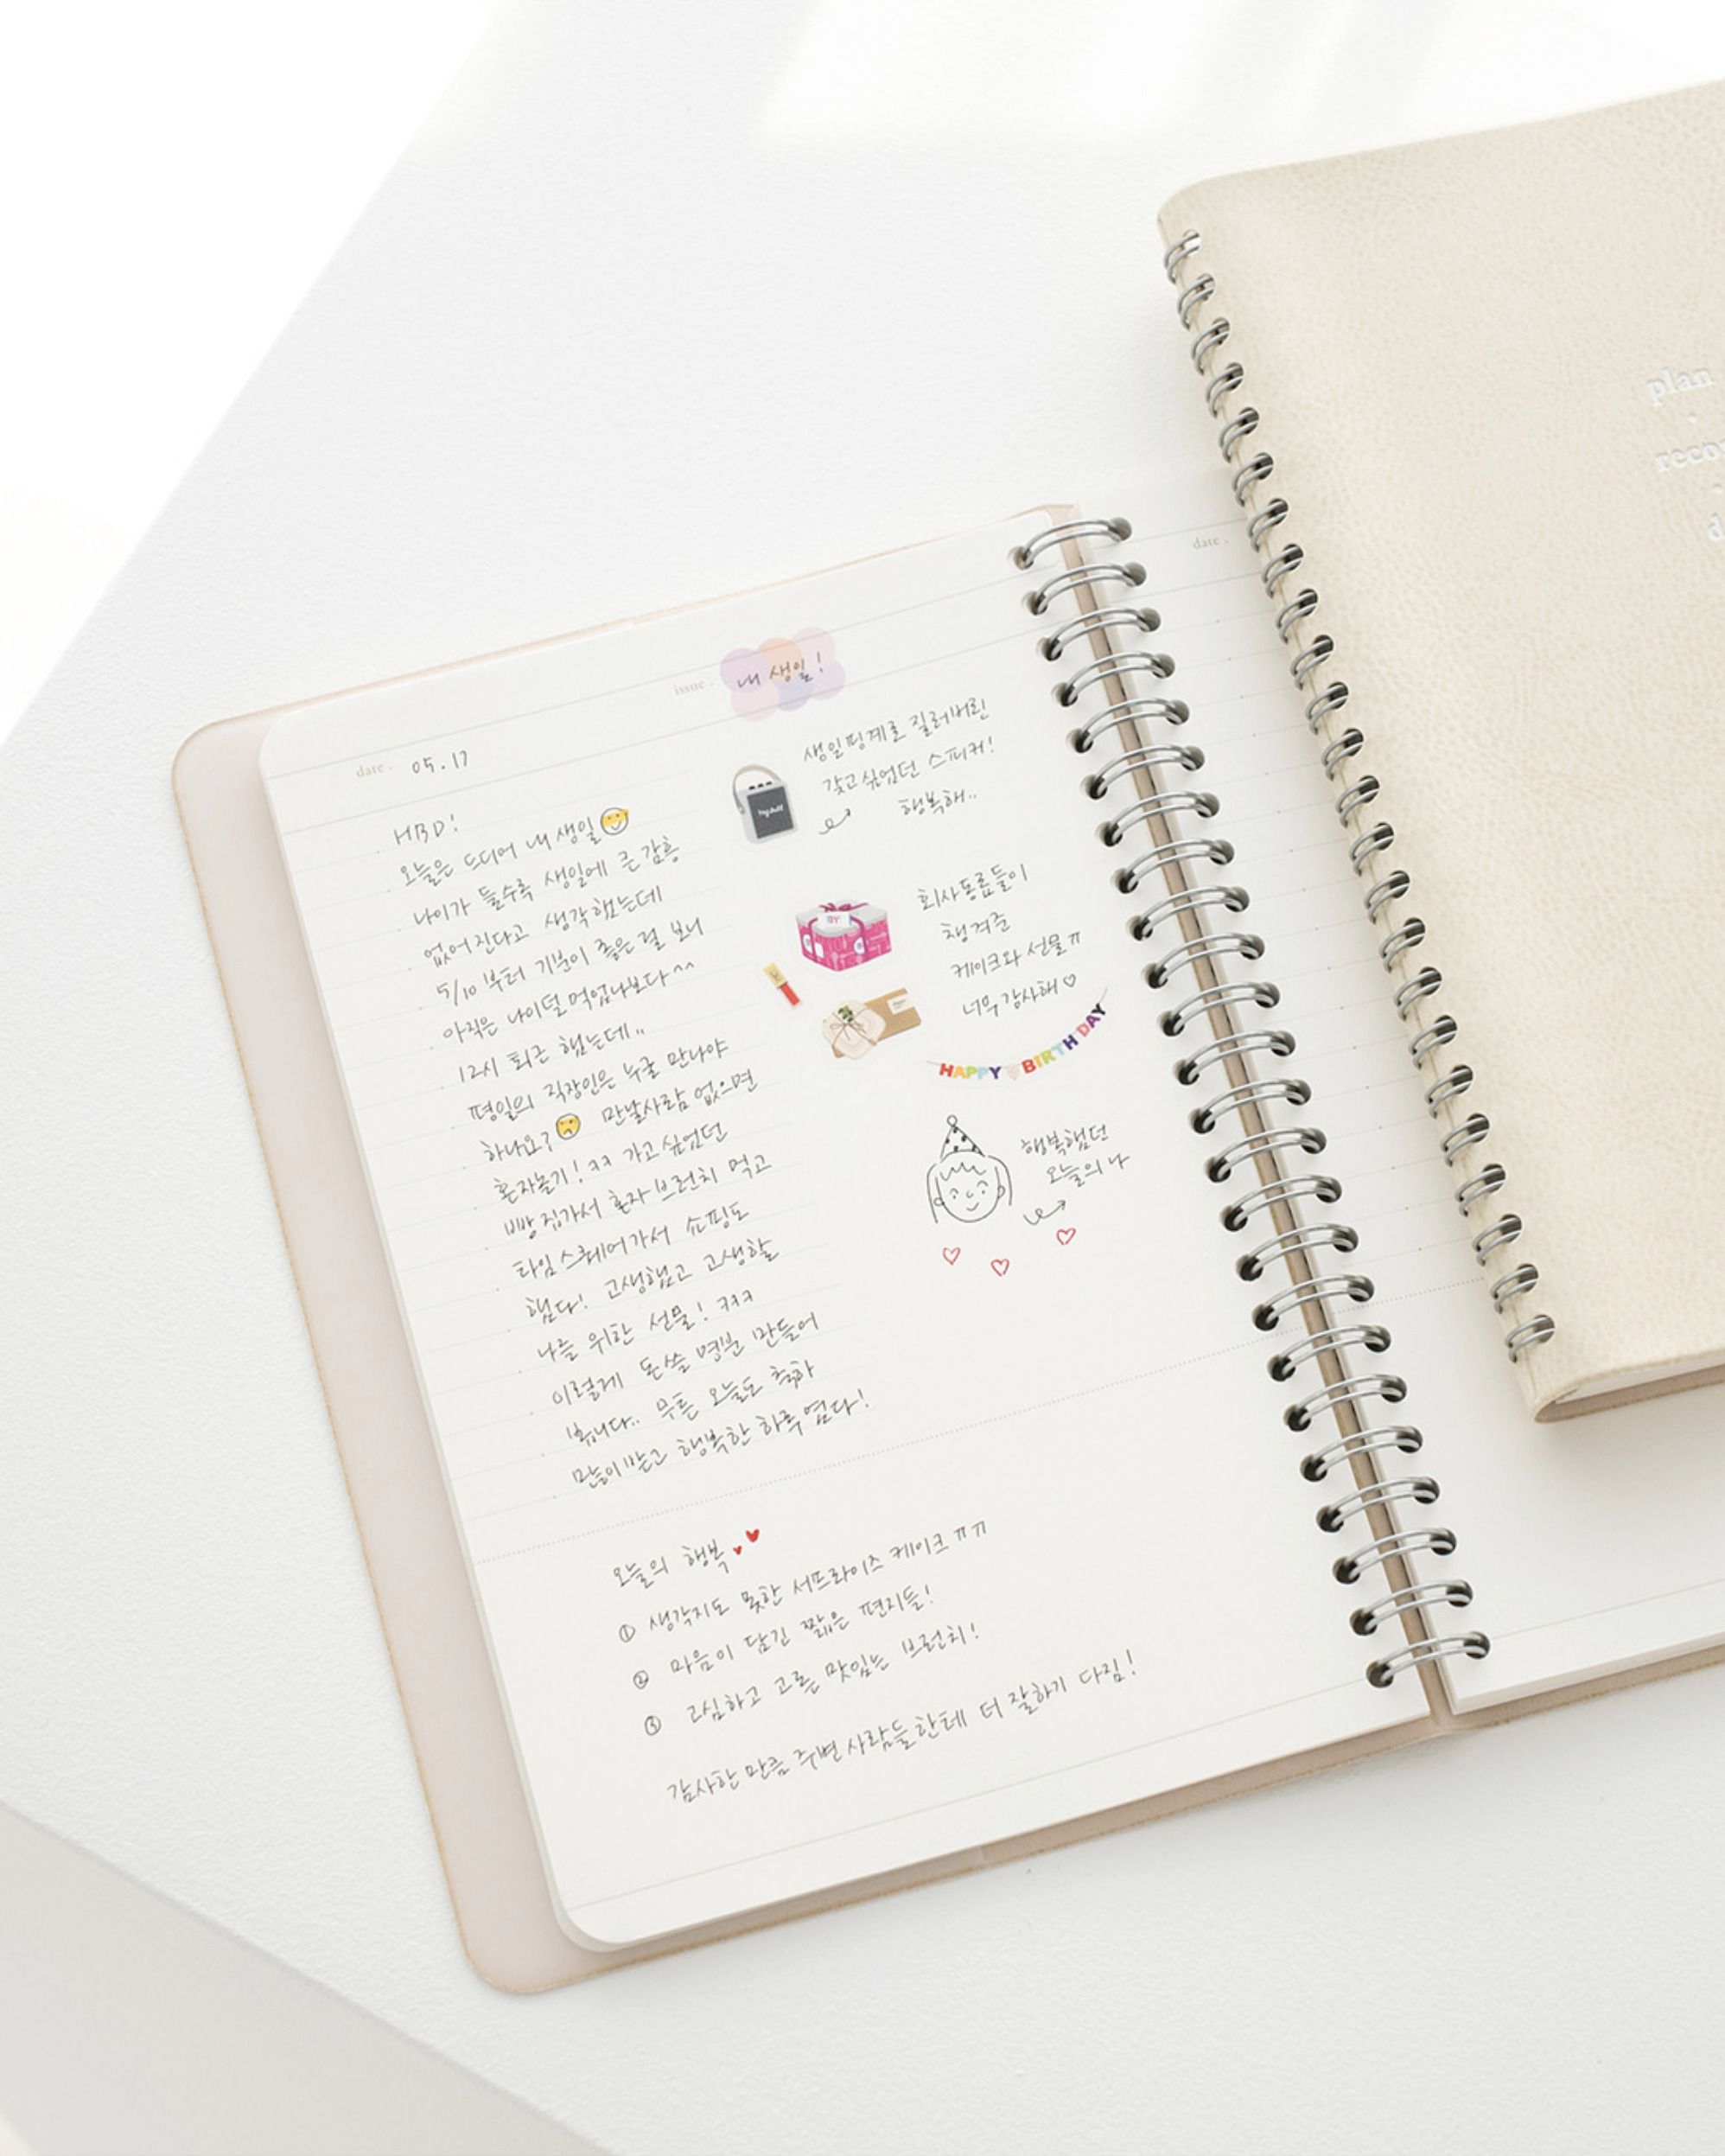 issue . 내 생일!
date . 05.17
HBD!
오늘은 드디어 내 생일
나이가 들수록 생일에 큰 감흥
없어진다고 생각했는데
5/10 부터 기분이 좋은 걸 보니
아직은 나이덜먹었나보다^^
12시 퇴근 했는데..
평일의 직장인은 누굴 만나야
하나요? 만날사람 없으면
혼자놀기! ㅋㅋ 가고싶었던
빵집가서 혼자 브런치 먹고
타임스퀘어가서 쇼핑도
했다! 고생했고 고생할
나를 위한 선물! ㅋㅋㅋ
이렇게 돈쓸 명분 만들어
봅니다.. 무튼 오늘도 축하
많이받고 행복한 하루였다!
생일핑계로 질러버린
갖고싶었던 스피커!
행복해..
회사동료들이
챙겨준
케이크와 선물ㅠ
너무감사해♡
HAPPY BIRTHDAY
행복했던
오늘의 나
오늘의 행복
① 생각지도 못한 서프라이즈 케이크 ㅠㅠ
② 마음이 담긴 짧은 편지들!
③ 고심하고 고른 맛있는 브런치!
감사한 만큼 주변 사람들한테 더 잘하기 다짐!
date .
plan